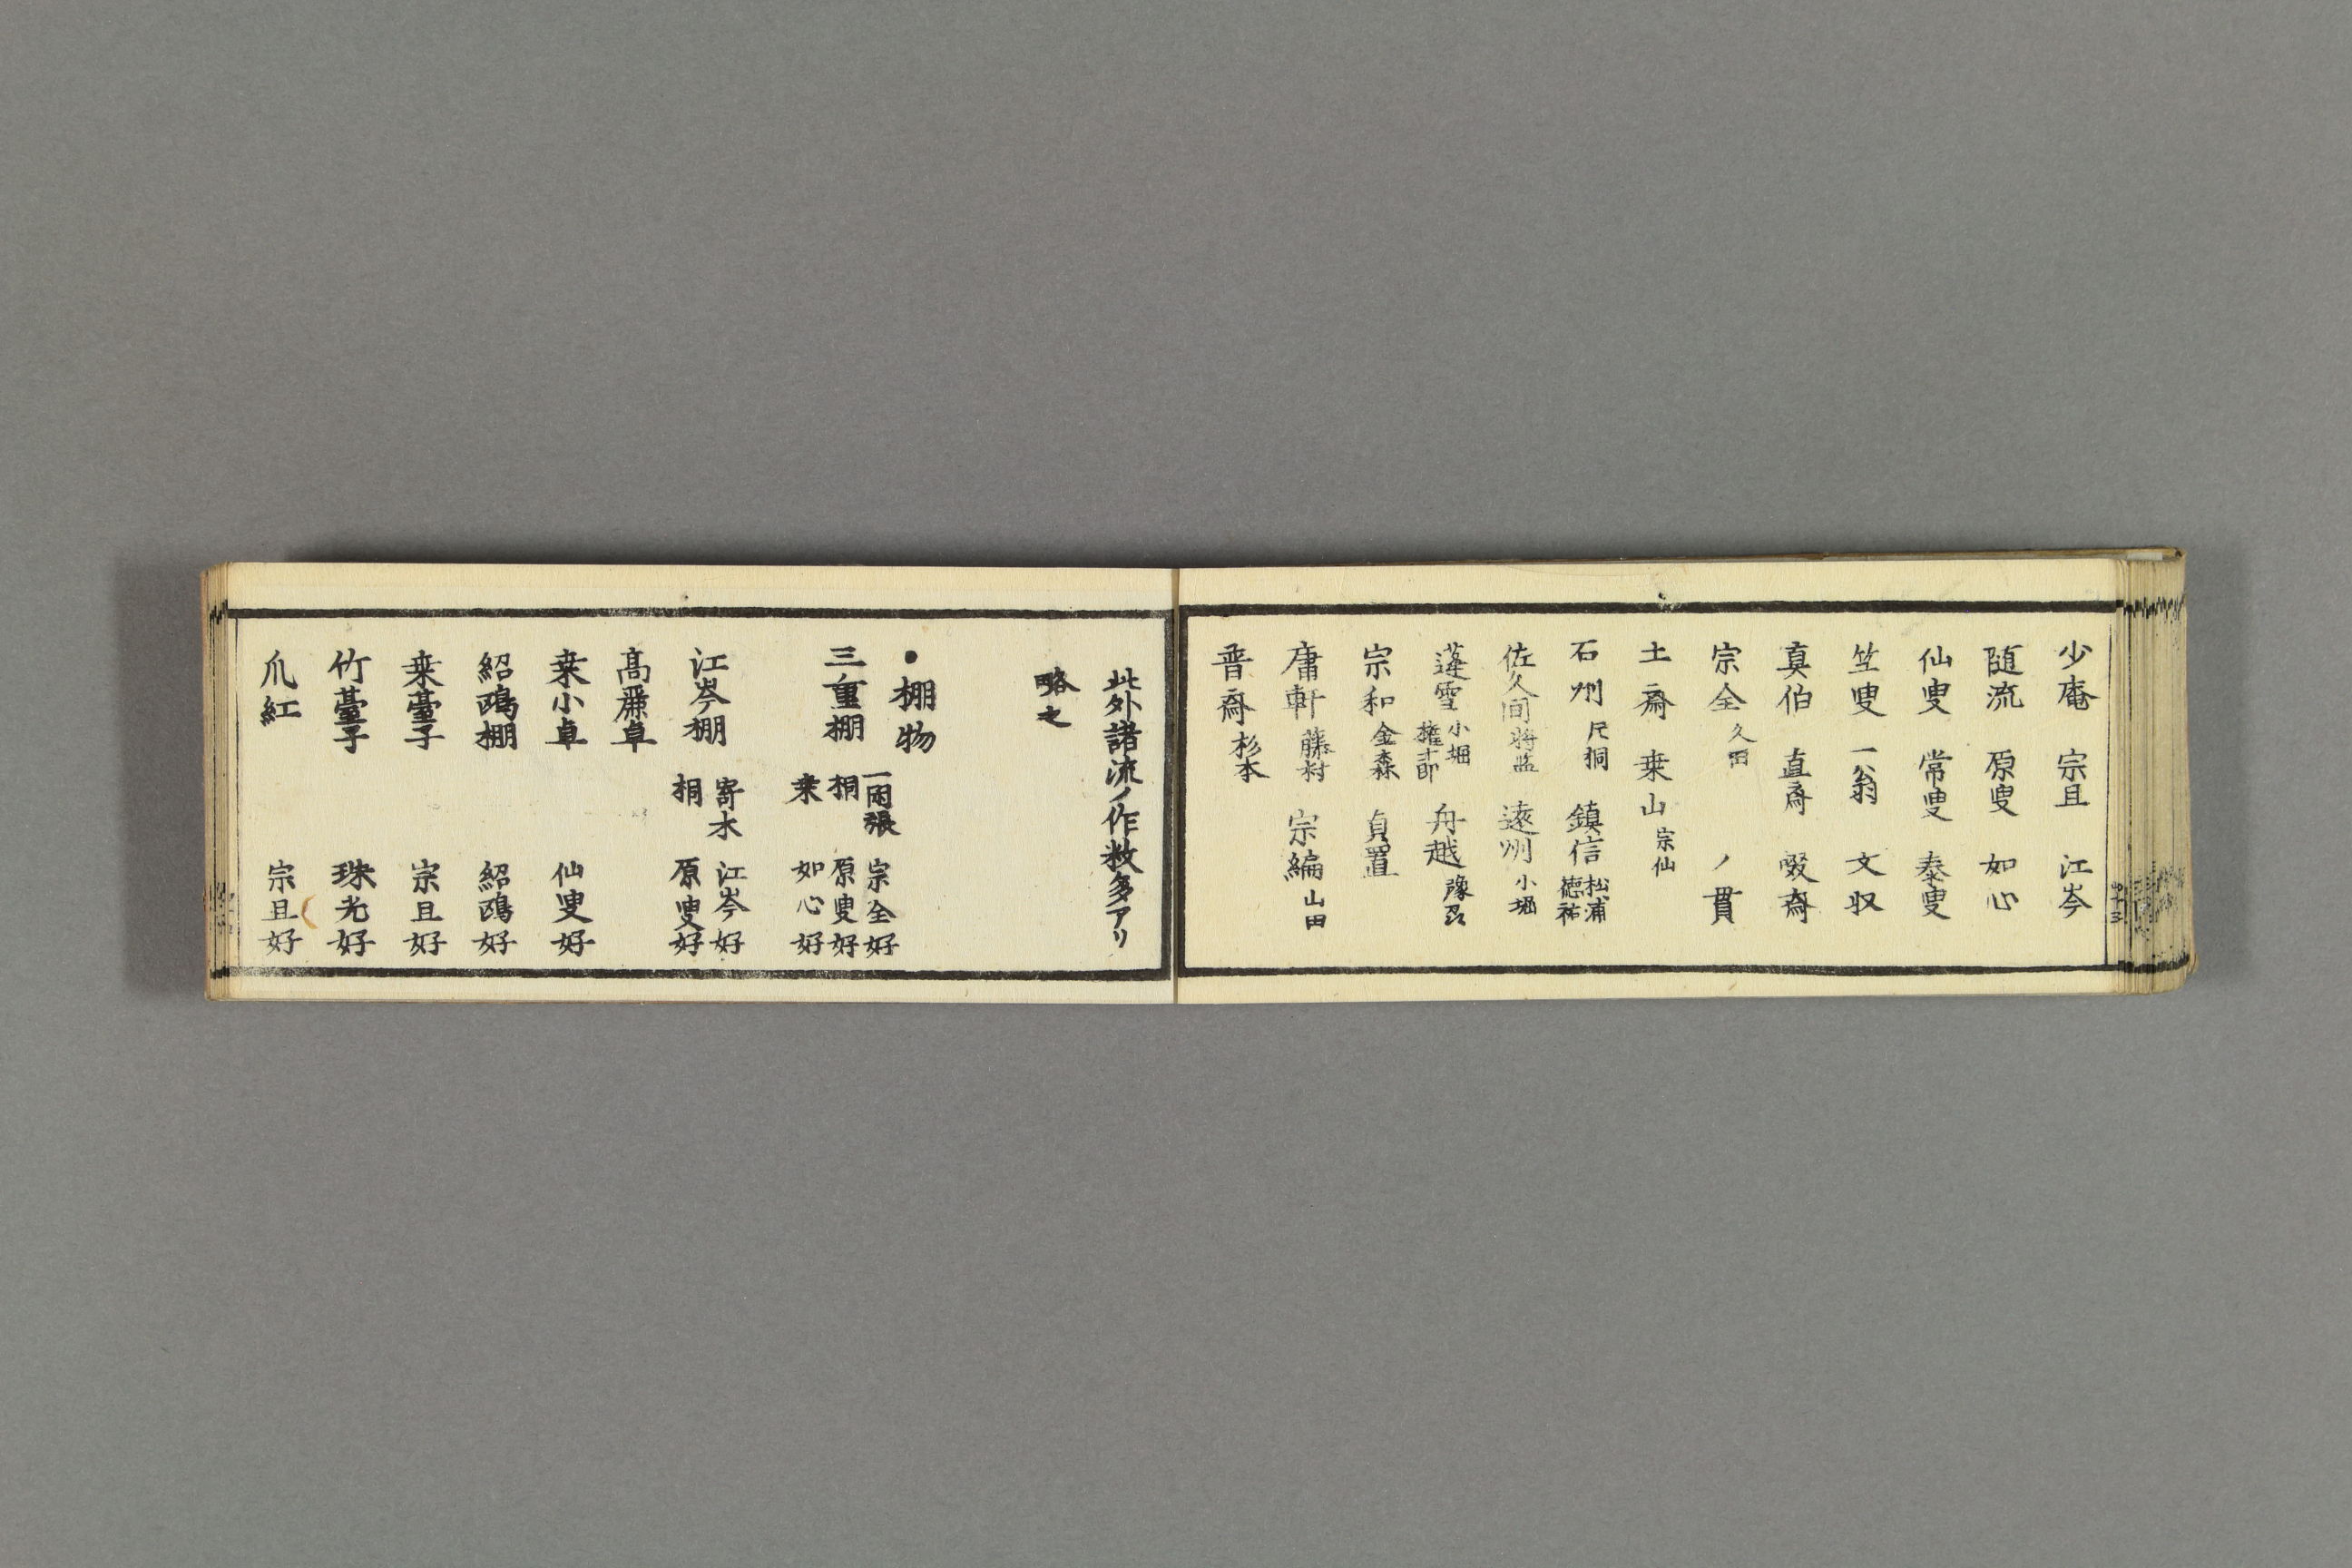 少庵 宗旦 江岑
随流 原叟 如心
仙叟 常叟 泰叟
竺叟 一翁 文叔
真伯 直斎 啜斎
宗全 久田 ノ貫
土斎 桒山 宗仙
石州 片桐 鎮信 松浦 徳祐
佐久間将監 遠州 小堀
蓬雪 小堀 権十郎 舟越 豫州
宗和 金森 貞置
庸軒 藤村 宗編 山田
普斎 杉本
此外諸流ノ作数多アリ
略之
●棚物
三重棚 一閑張 宗全好
桐 原叟好
桒 如心好
江岑棚 寄木 江岑好
桐 原叟好
髙麗卓
桒小卓 仙叟好
紹鴎棚 紹鴎好
桒臺子 宗旦好
竹臺子 珠光好
爪紅 宗旦好